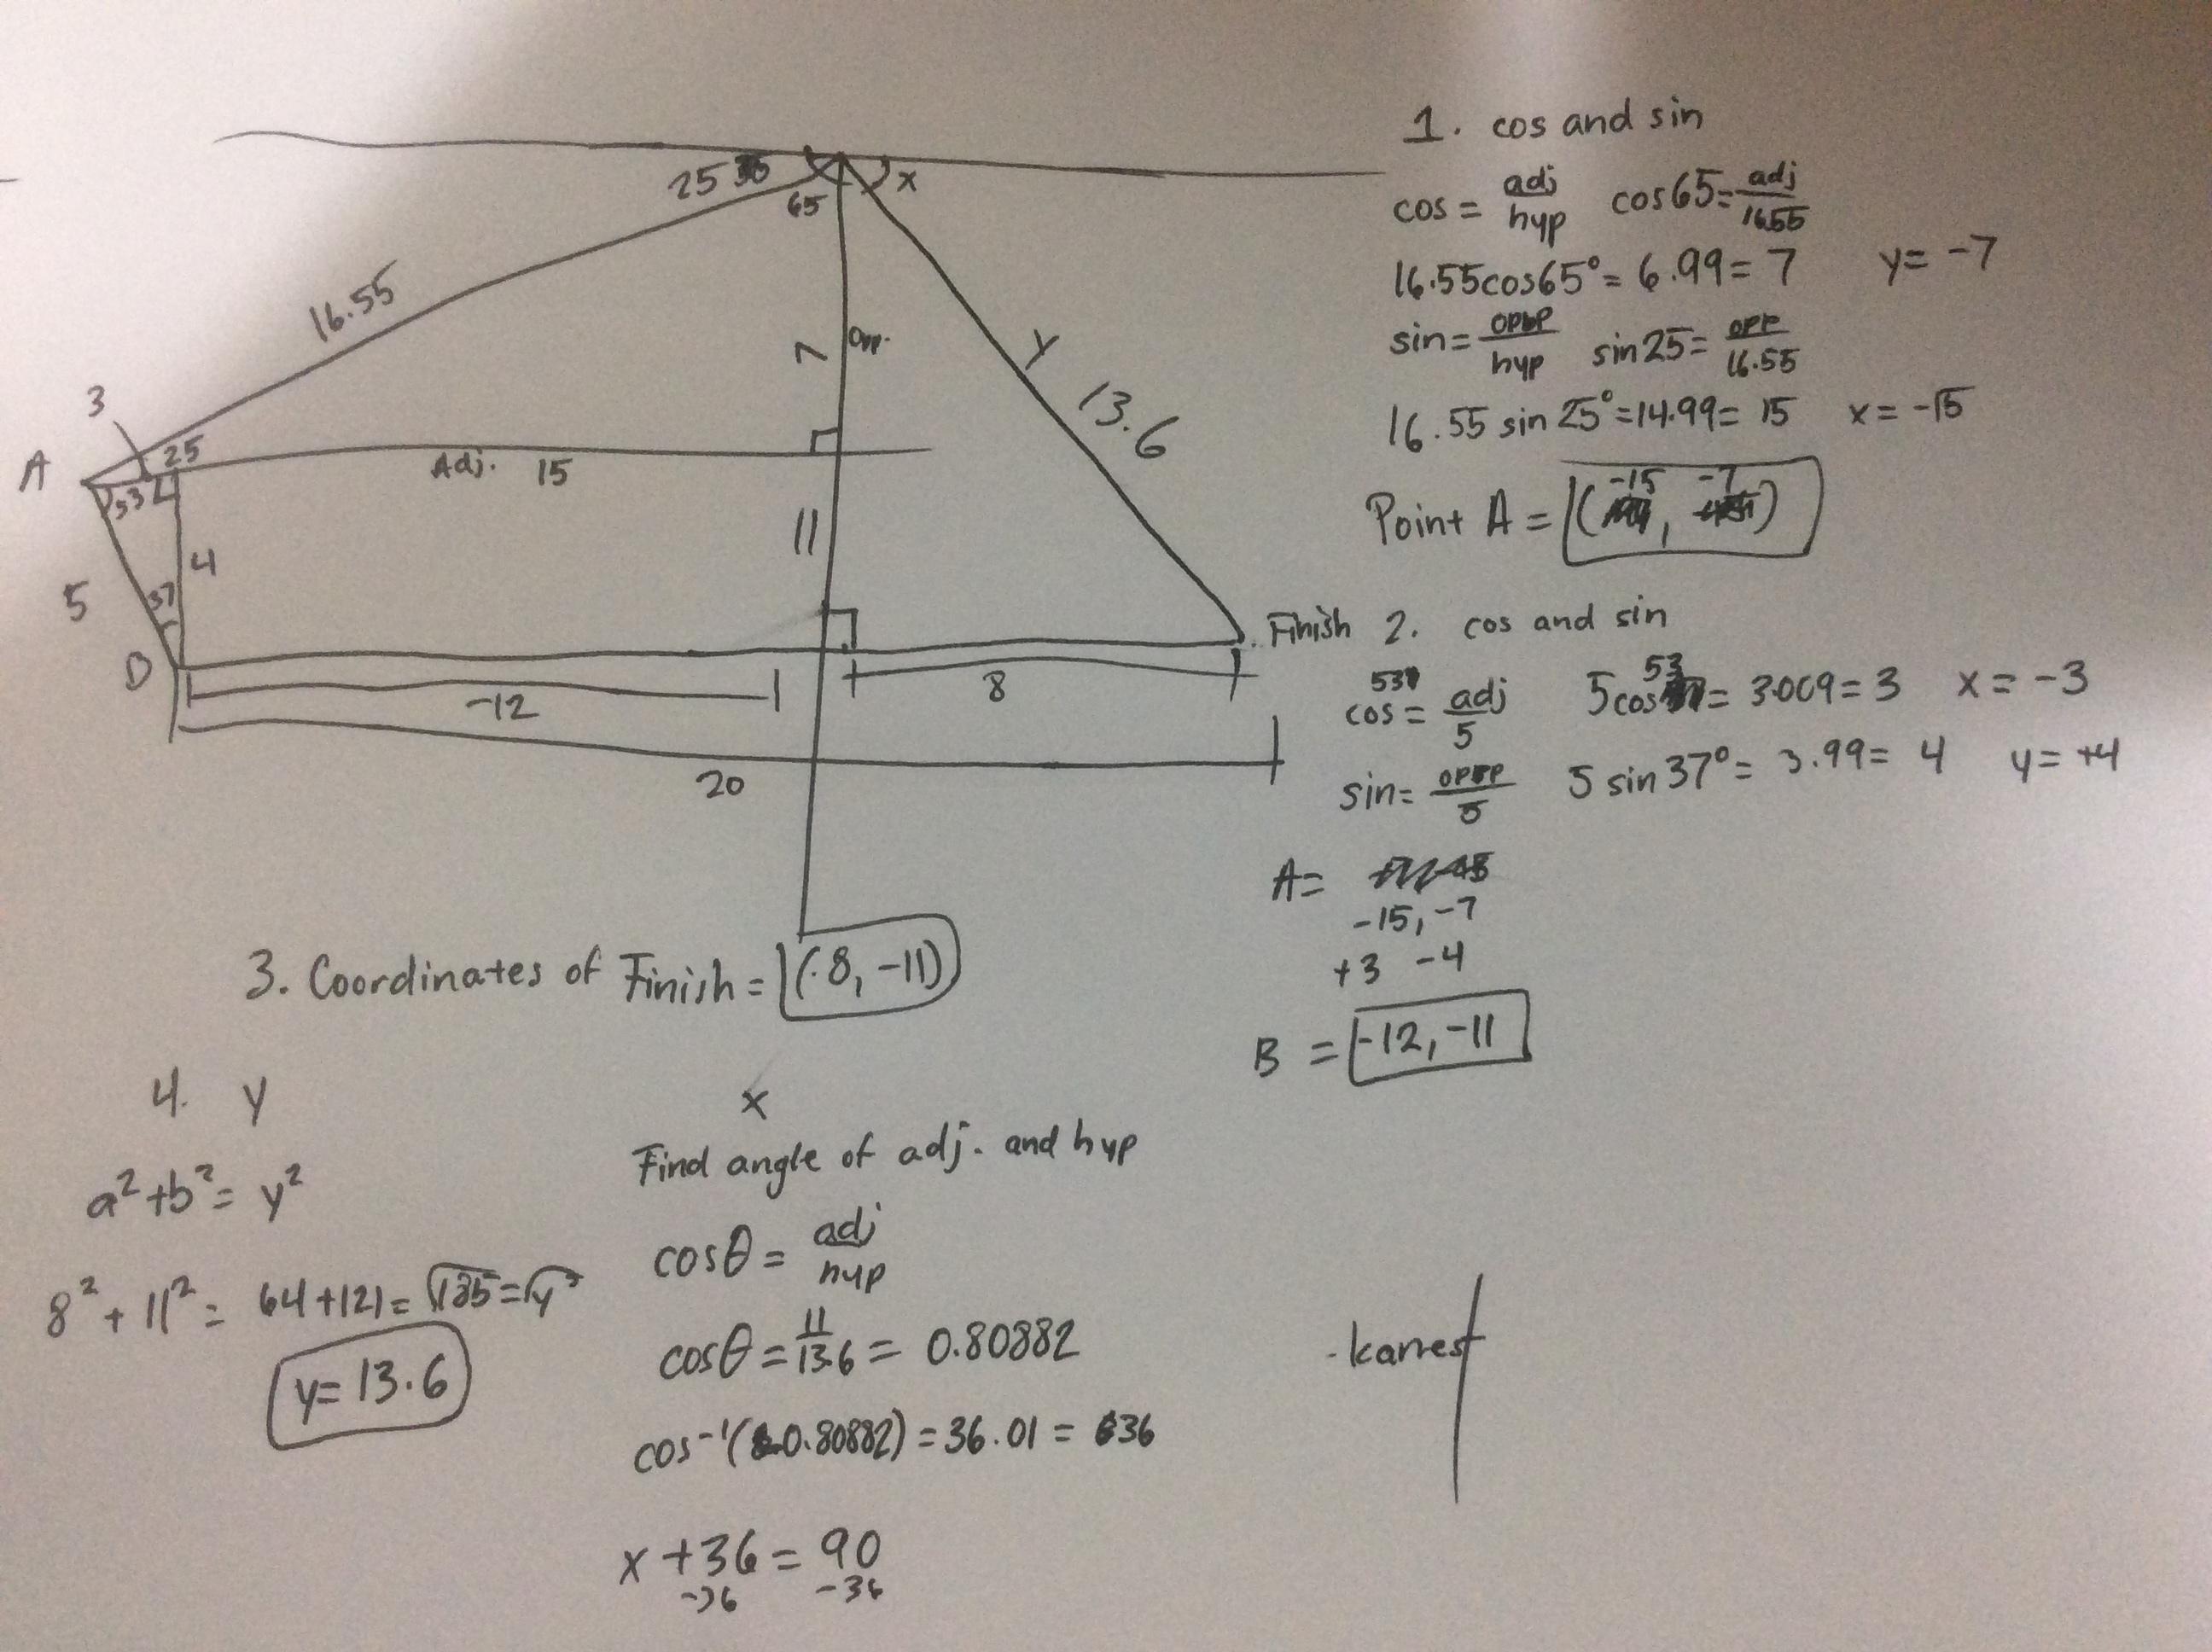 25
x
65
16.55
7
Opp.
y
13.6
3
A
25
Adj. 15
53
11
4
5
37
B
Finish
-12
8
20
1. cos and sin
cos = adj/hyp cos65 = adj/16.55
16.55cos65° = 6.99 = 7 y = -7
sin = opp/hyp sin25 = opp/16.55
16.55 sin 25° = 14.99 = 15 x = -15
Point A = (-15, -7)
2. cos and sin
53
cos = adj/5 5cos53 = 3.009 = 3 x = -3
sin = opp/5 5 sin 37° = 3.99 = 4 y = +4
A =
-15, -7
+3 -4
B = -12, -11
3. Coordinates of Finish = (8, -11)
4. y
a² + b² = y²
8² + 11² = 64 + 121 = √185 = √y²
y = 13.6
x
Find angle of adj. and hyp
cosθ = adj/hyp
cosθ = 11/13.6 = 0.80882
cos⁻¹(0.80882) = 36.01 = 36
x + 36 = 90
-36 -36